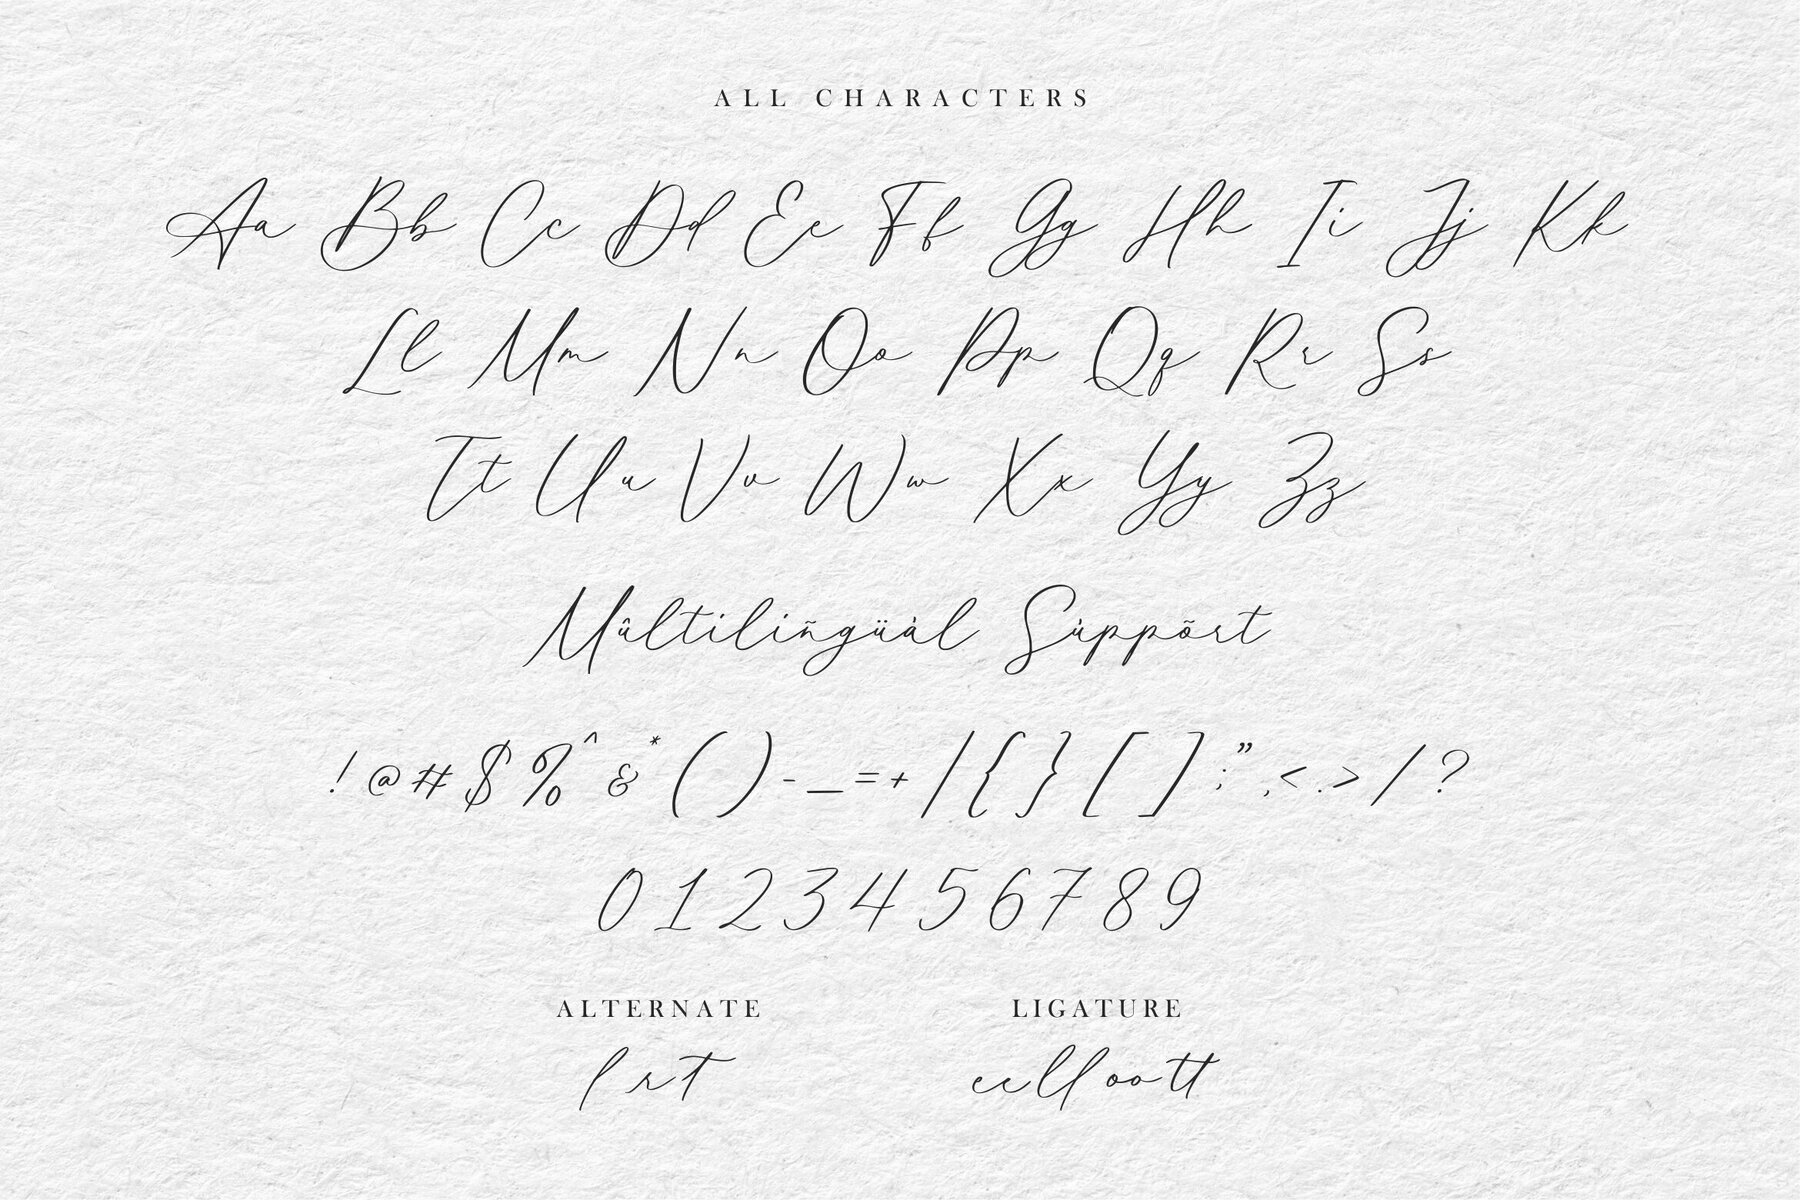 ALL CHARACTERS
Aa Bb Cc Dd Ee Ff Gg Hh Ii Jj Kk
Ll Mm Nn Oo Pp Qq Rr Ss
Tt Uu Vv Ww Xx Yy Zz
Mûltiliñgüàl Sùppõrt
! @ # $ % ^ & * ( ) - _ = + | { } [ ] ; ” , < . > / ?
0 1 2 3 4 5 6 7 8 9
ALTERNATE LIGATURE
l r t ee ll oo tt